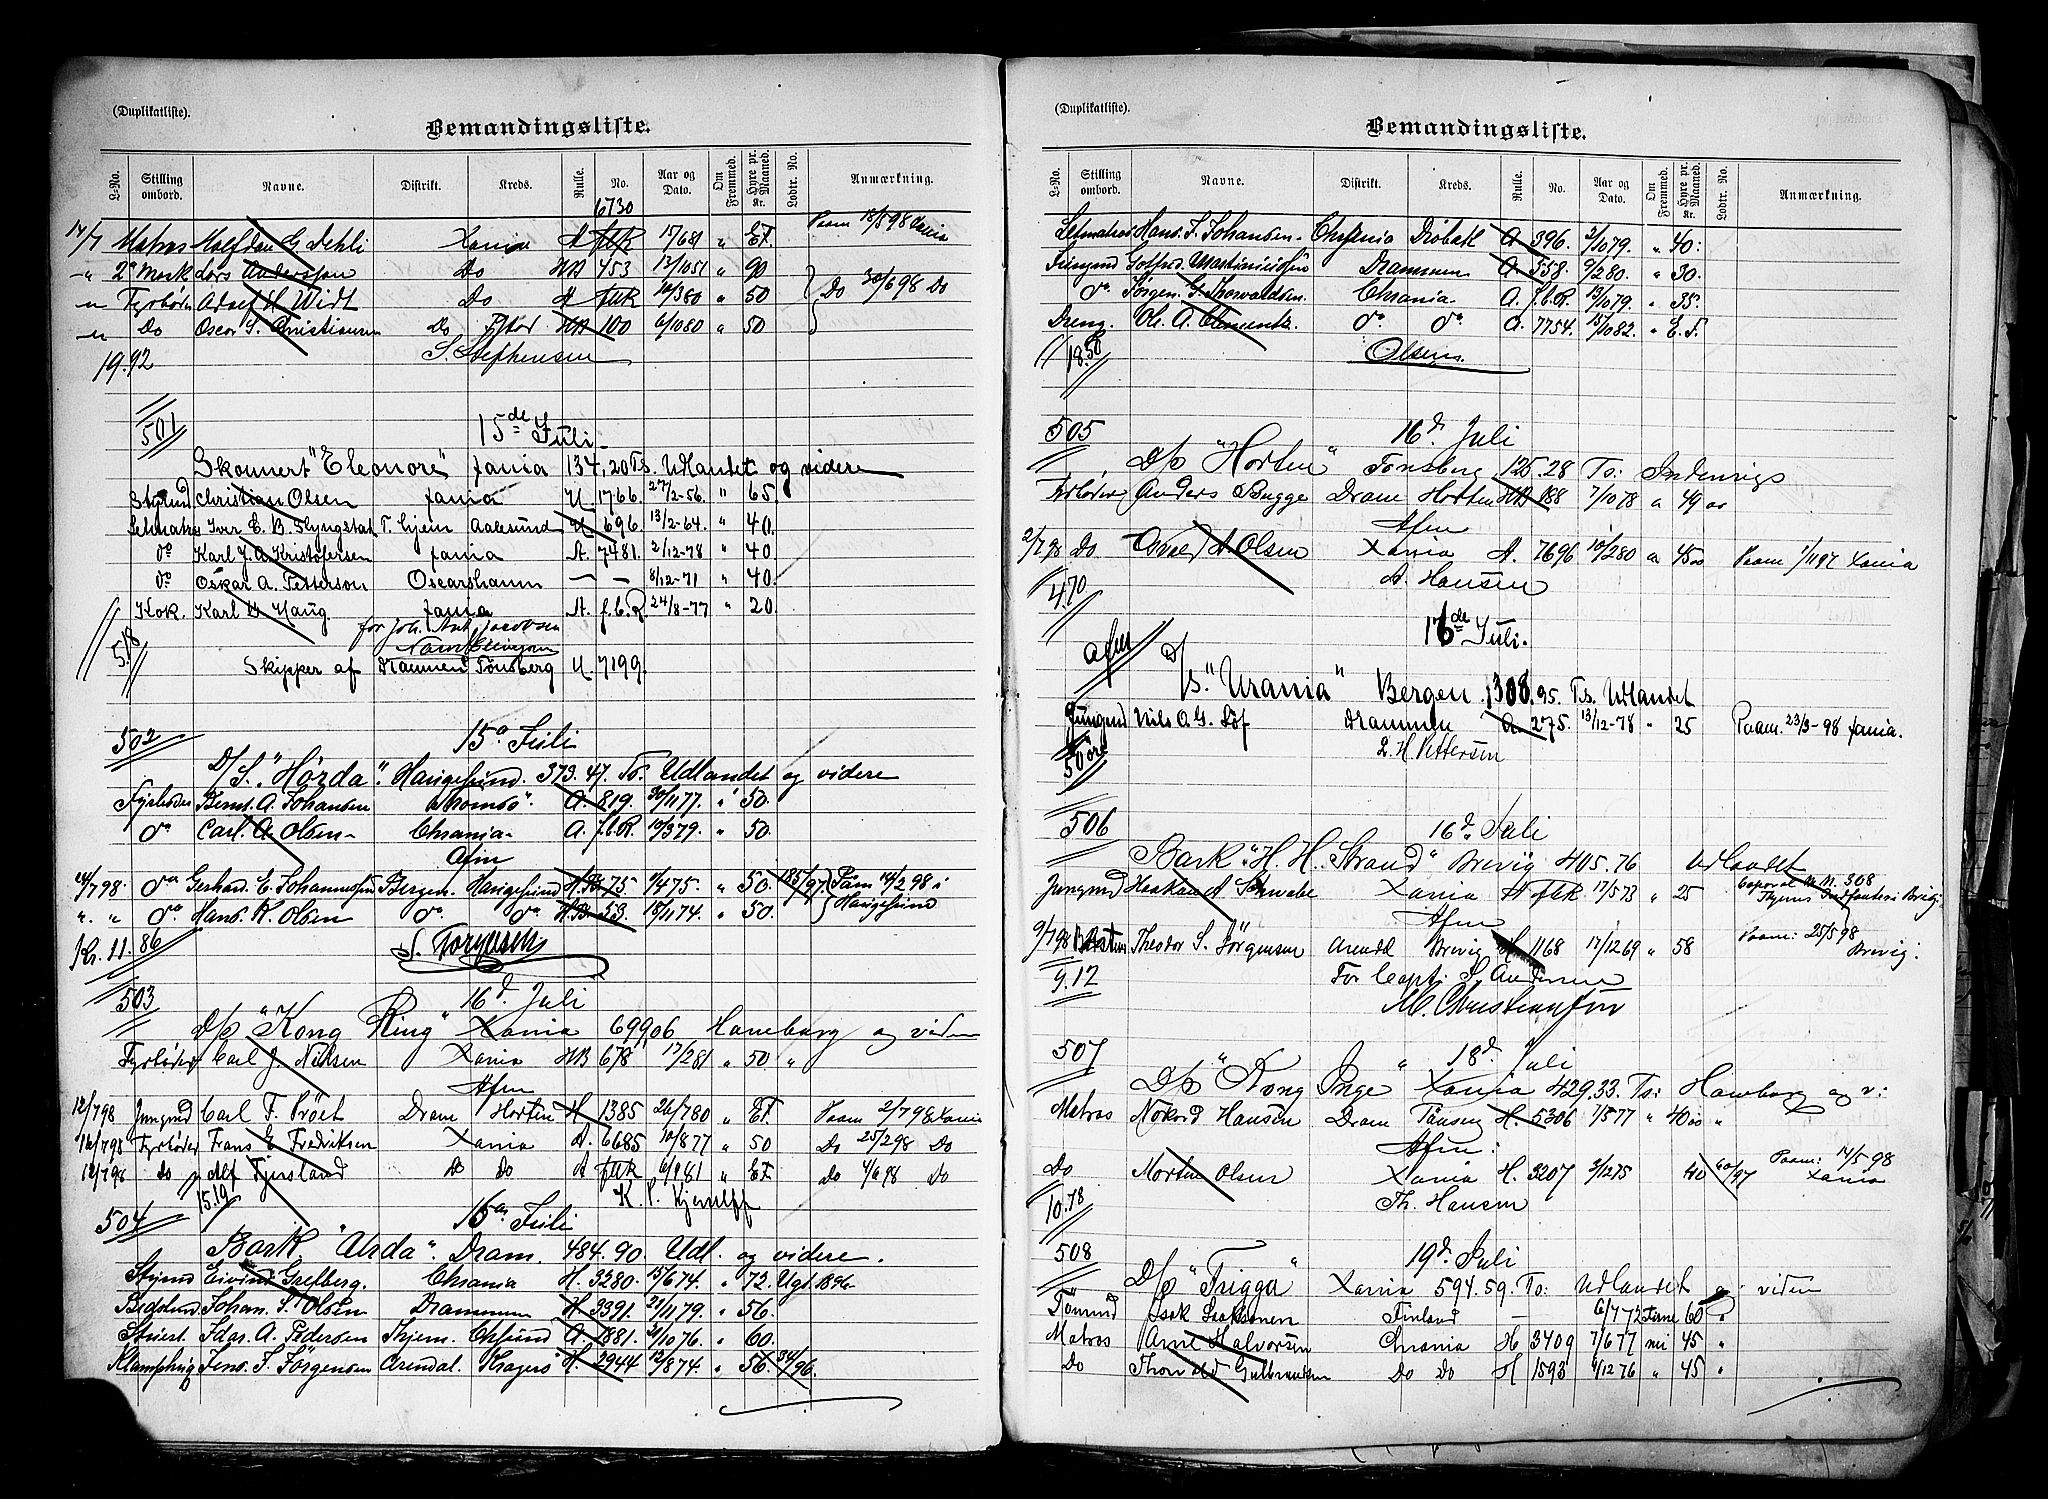 (Duplikatliste).
Bemandingsliste.
L-No. Stilling ombord. Navne. Distrikt. Kreds. Rulle. No. Aar og Dato. Om Fremmed. Hyre pr. Maaned. Kr. Lodtr. No. Anmærkning.
6730
14/7 Matros G. Dehli Xania A fttR 15/681 " E.F. Paam 18/598 Xania
" 2d Mask Lars Anderssen Do HB 453 13/1051 " 90
" Fyrbøder Adolf H. Widt Do A fttR 380 " 50 Do 30/698 Do
" Do Oscar S. Christiansen Do HB 100 6/1080 " 50
19.92 S. Stephensen
501 15de Juli
Skonnert "Eleonore" fania 134,20 Ts. Udlandet og videre
Styrmd Christian Olsen fania U. 1766. 27/2-56. " 65
Letmatros Iver E. B. Flyngstat T. hjem Aalesund U. 696. 13/2-64. " 40.
do Karl J. A. Kristofersen fania A. 7481. 2/12-78 " 40.
do Oskar A. Petterson Oscarshamn — — 8/12-71 " 40.
Kok. Karl Haug fania A. f.t.R. 24/8-77 " 20.
for Joh. Ant. Jacobsen
5.18
Skipper af Drammen Tønsberg U. 7199.
502 15d Juli
D/S. "Hørda". Haugesund. 373.47. To. Udlandet og videre
Fyrbøder Bernt. A. Johansen Tromsø. A. 819. 30/1177. " 50.
do Carl. A. Olsen Chrania A. f.t.R. 10/379. " 50.
Afm
14/798 do Gerhard. E. Johannessen Bergen. Haugesund H.B. 75. 1/475. " 50. 1857/97. Paam 14/298 i
" " do Hans. K. Olsen do do H.B. 53. 18/1174. " 50. Haugesund
Kr. 11.86 S. Torgersen
503 16d Juli
D/p "Kong Ring" Xania 699.06 Hamburg og viden
Fyrbøder Carl J. Nielsen Xania HB 678 17/281 " 50 "
Afm
12/798 Jungmd Carl F. Prøet Dram Horten H. 1385 26/780 " E.F. Paam 2/798 Xania
16/798 Fyrbøder Frans E. Fredriksen Xania A. 6685 10/877 " 50 Do 25/298 Do
12/798 do Alf Fjersland Do Do A fttR 6/981 " E.F. Do 4/698 Do
15.19 K. P.
504 16d Juli
Bark "Alrda". Dram. 484.90. Udl. og videre.
Styrmd Eivind Grefberg. Chrania H. 3280. 15/674. " 72. Ugt. 1896
Bedstmd Johan. S. Olsen Drammen H. 3391. 21/1179. " 56.
Stuert. Idar. A. Pedersen Thjem. Chrsund A. 1881. 21/1076. " 60.
Klamphug Jens. F. Jørgensen Arendal. Kragerø H. 2944 12/874. " 56. 34/96.
(Duplikatliste).
Bemandingsliste.
L-No. Stilling ombord. Navne. Distrikt. Kreds. Rulle. No. Aar og Dato. Om Fremmed. Hyre pr. Maaned. Kr. Lodtr. No. Anmærkning.
Letmatros Hans. J. Johansen. Chrania Drøbak A. 396. 2/1079. " 40.
Jungmd Gotfred. Drammen A. 558. 9/280. " 30.
do Jørgen. G. Thorvaldsen. Chrania. A. f.t.R. 13/1079. " 35.
Dreng. Ole. A. Clementz. do do A. 7754. 15/1082. " E.F.
18.50 Olsen
505 16d Juli
D/p "Horten" Tønsberg 125.28 To: Indenrigs
Fyrbøder Anders Bugge Dram Horten HB 188 7/1078 " 49 00
Afm
2/798 Do Oscal A. Olsen Xania A. 7696 10/280 " 45 00 Paam 7/1197 Xania
4.70 A. Hansen
16de Juli.
afm D/S. "Urania" Bergen. 1308.95. Ts. Udlandet
Jungmd Nils A. G. Løf Drammen A. 275. 13/12-78 " 25 Paam. 23/3-98 fania.
50 øre L. H. Pettersen
506 16d Juli
Bark "H. H. Strand" Brevig 405.76 Udlandet
Jungmd Haakon A Schwabe Xania A fttR 17/573 " 25 Caporal N. M. 308
Afm
9/798 Theodor S. Jørgensen Arendl Brevig H. 1168 17/1269 " 58 Paam: 25/598 Brevig.
9.12 For Capt. S. Andersen
M. Christiansen
507 18d Juli
D/p "Kong Inge" Xania 429.33. To: Hamburg og v:
Matros Nokord Hansen Dram Tønsbg H. 5306 7/577 " 40 00 "
Afm:
Do Morten Olsen Xania H. 3207 3/1275 40 60/97 Paam: 14/598 Xania
10.78 Th. Hansen
508 19d Juli
D/p "Frigga" Xania 594.59. To: Udlandet og viden
Tømmd Isak Isaksonen Finland — 6/772 Finne 60 "
Matros Arne Halvorsen Chrania H 3409 7/677 nei 45 "
Do Thorvald Gulbrandsen Do Do H 1593 9/1276 " 45 "